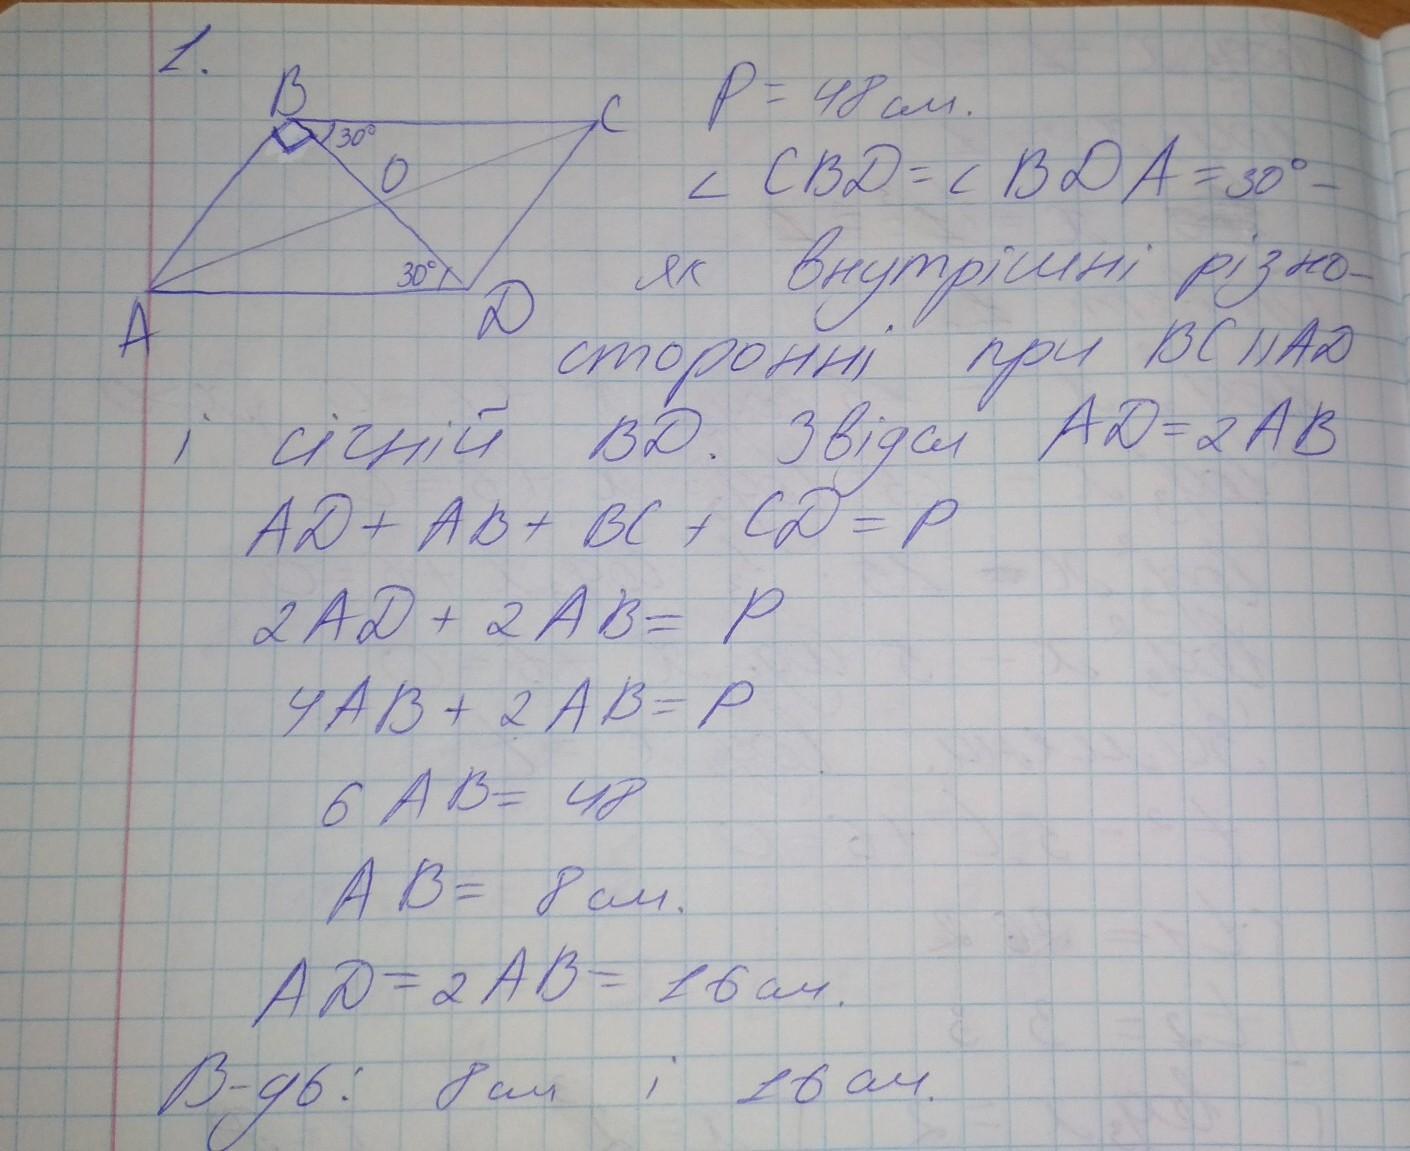 1.
B
C
30°
O
30°
A
D
P = 48 см.
∠ CBD = ∠ BDA = 30° –
як внутрішні різно-
сторонні при BC || AD
і січній BD. Звідси AD = 2AB
AD + AB + BC + CD = P
2AD + 2AB = P
4AB + 2AB = P
6 AB = 48
AB = 8 см.
AD = 2AB = 16 см.
В-дь: 8 см і 16 см.